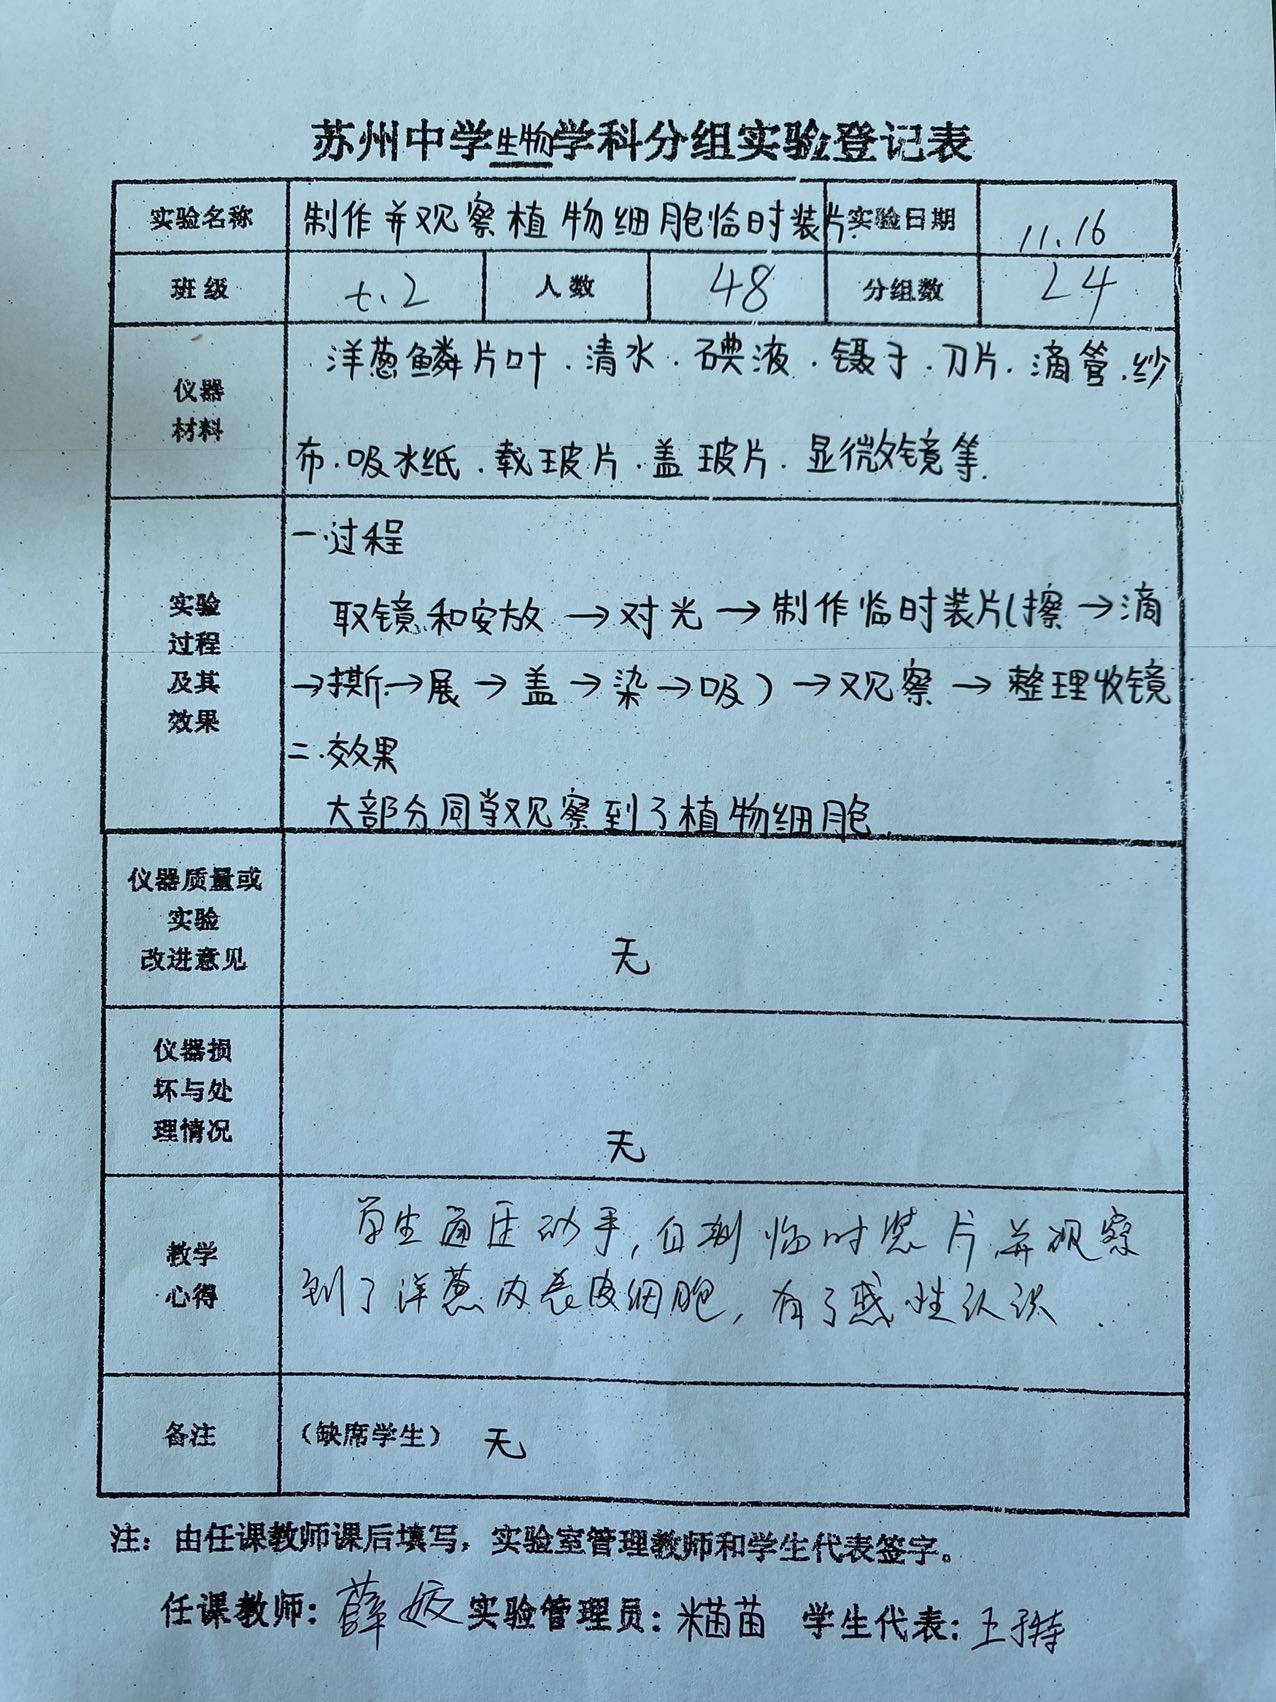 苏州中学生物学科分组实验登记表
实验名称 制作并观察植物细胞临时装片 实验日期 11.16
班级 七.2 人数 48 分组数 24
仪器
材料
洋葱鳞片叶.清水.碘液.镊子.刀片.滴管.纱
布.吸水纸.载玻片.盖玻片.显微镜等.
实验
过程
及其
效果
一.过程
取镜和安放→对光→制作临时装片(擦→滴
→撕→展→盖→染→吸)→观察→整理收镜
二.效果
大部分同学观察到了植物细胞
仪器质量或
实验
改进意见
无
仪器损
坏与处
理情况
无
教学
心得
学生通过动手,自制临时装片并观察
到了洋葱内表皮细胞,有了感性认识.
备注 (缺席学生) 无
注:由任课教师课后填写,实验室管理教师和学生代表签字。
任课教师:薛姣 实验管理员:米苗苗 学生代表:王